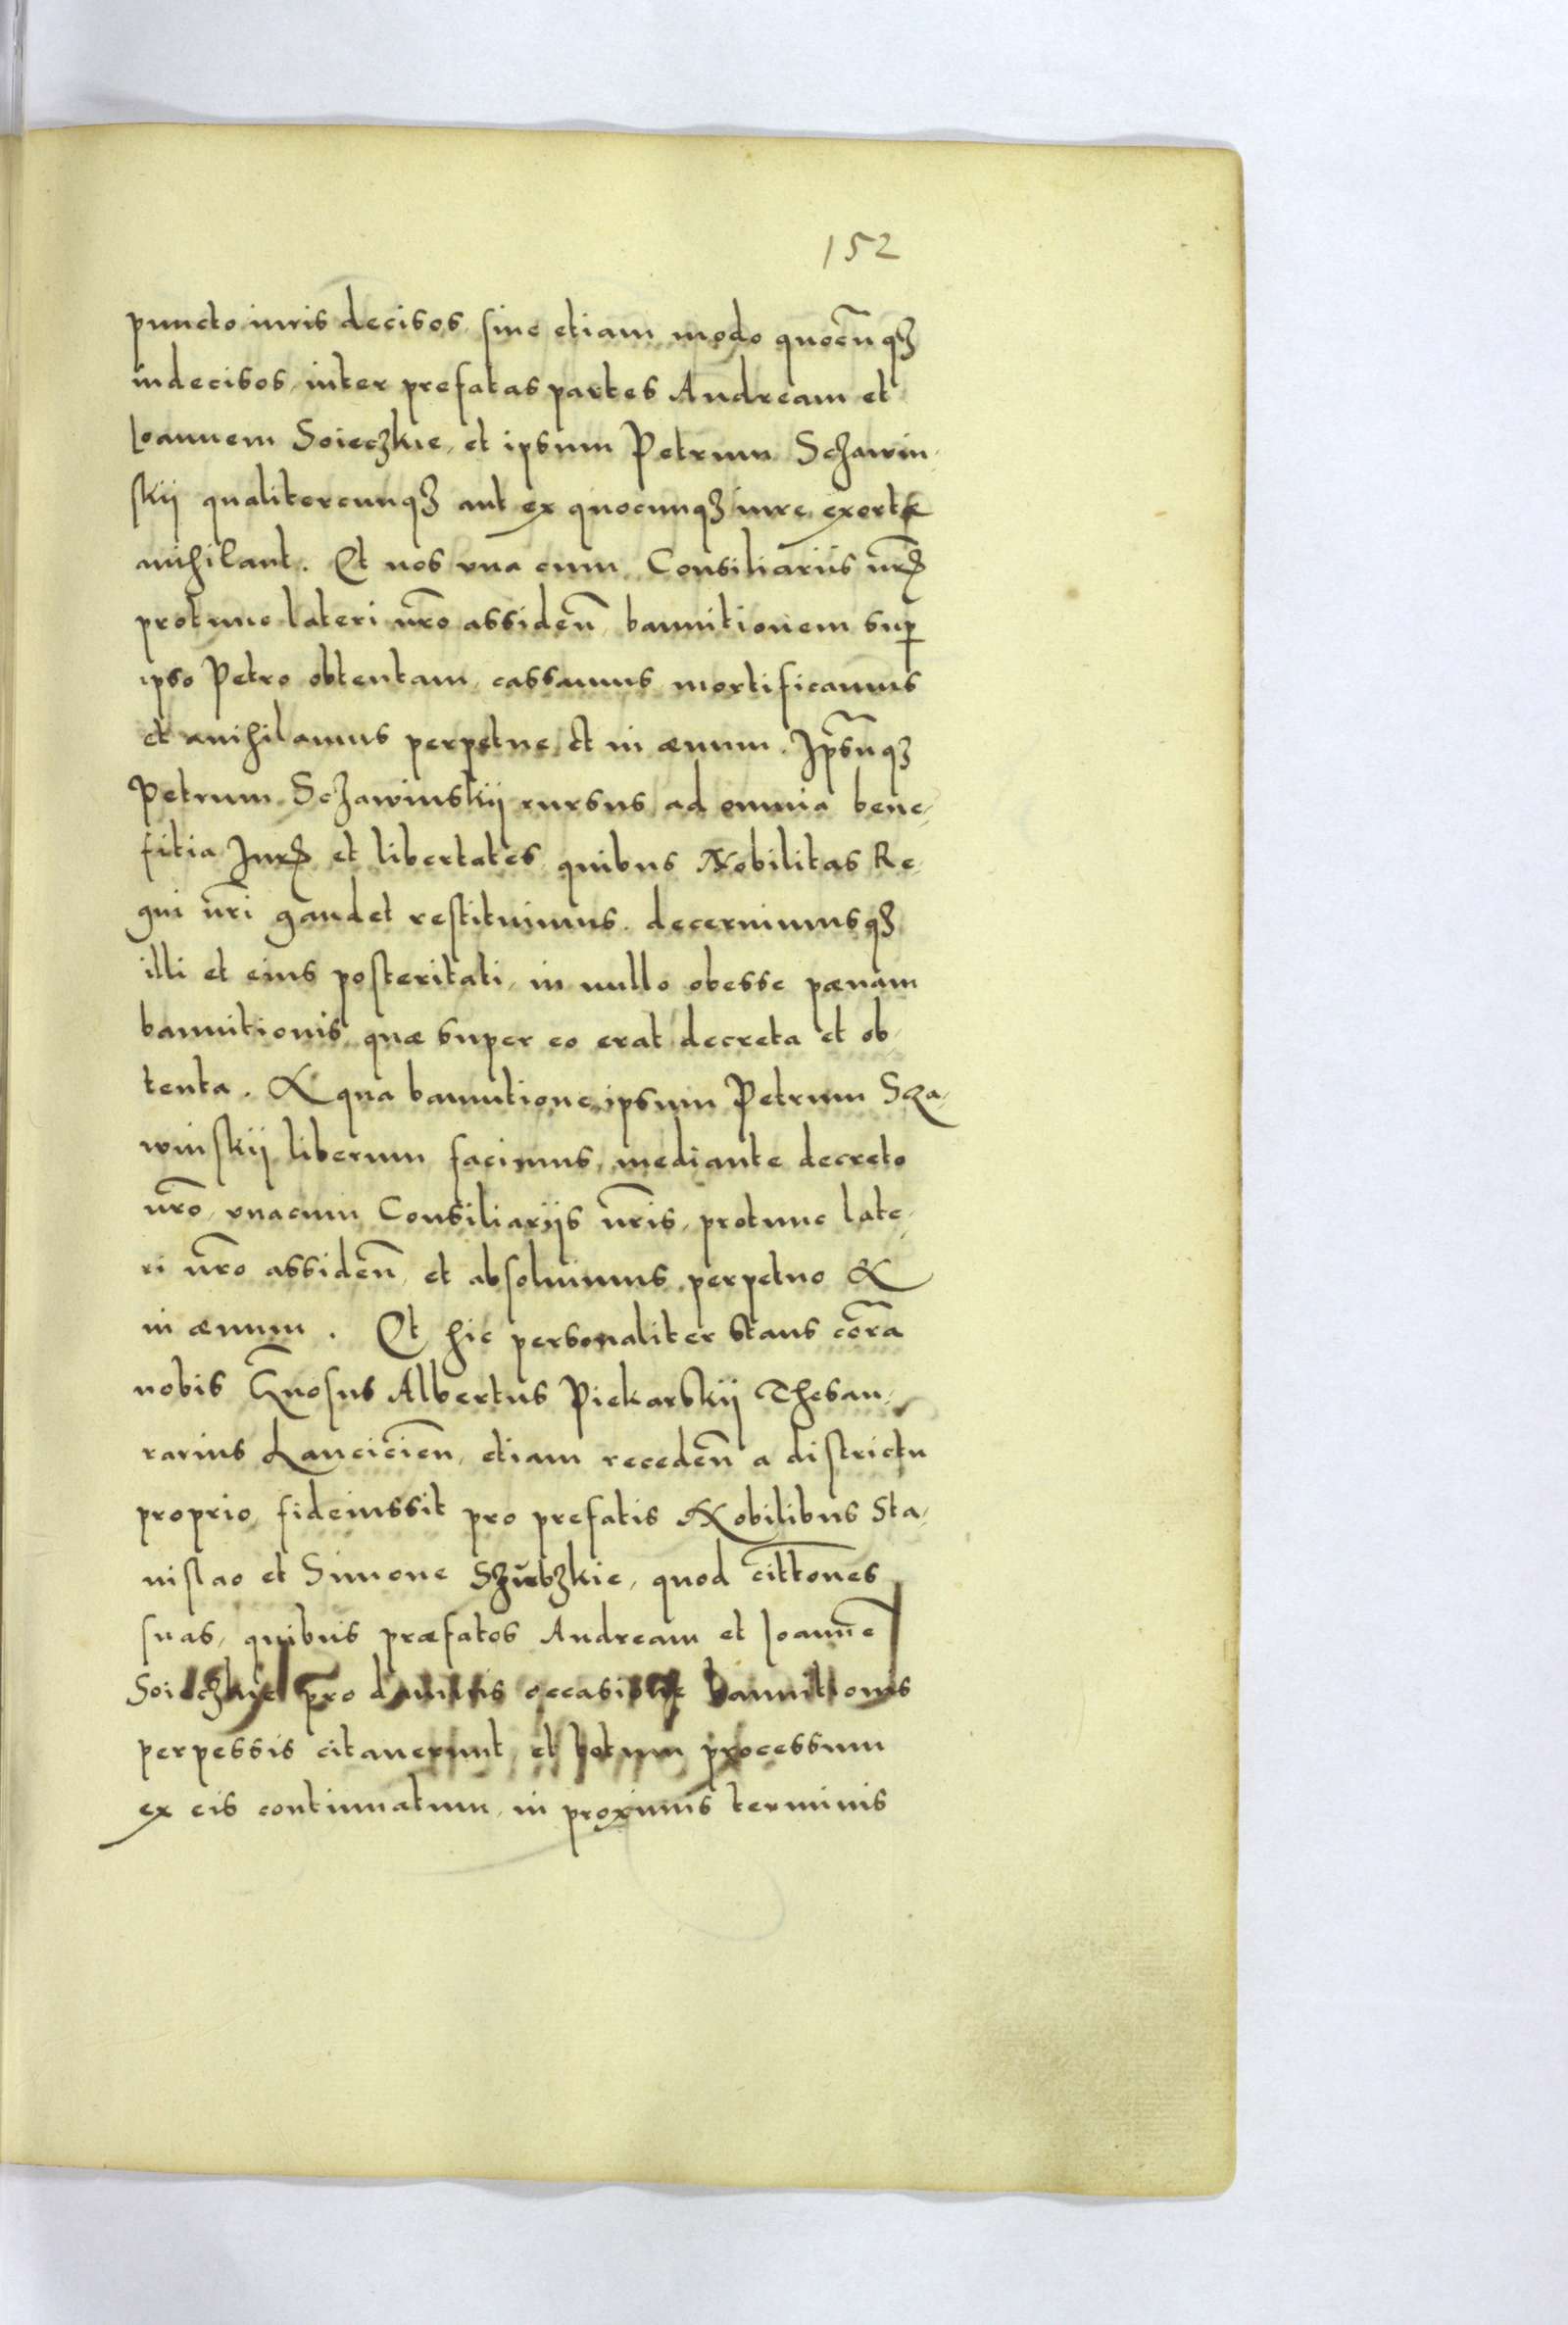 152
puncto iuris decisos siue etiam modo quocūqꝫ
indecisos, inter prefatas partes Andream et
Ioannem Soieczkie, et ipsum Petrum Sczawin,
skij qualitercunqꝫ aut ex quocunqꝫ iure exortę
anihilant. Et nos vna cum Consiliariis nr̄is
protunc lateri nr̄o assiden̄, bannitionem suꝑ
ipso Petro obtentam, cassamus mortificamus
et anihilamus perpetue et in æuum. Ipsūqꝫ
Petrum Sczawinskij rursus ad omnia bene,
fitia Iuris et libertates quibus Nobilitas Re,
gni nr̄i gaudet restituimus. decernimusqꝫ
illi et eius posteritati, in nullo obesse pœnam
bannitionis quæ super eo erat decreta et ob,
tenta. A qua bannitione ipsum Petrum Scza,
winskij liberum facimus, mediante decreto
nr̄o, vnacum Consiliarijs nr̄is, protunc late,
ri nr̄o assiden̄, et absoluimus perpetuo &
in æuum. Et hic personaliter stans corā
nobis Gn̄osus Albertus Piekarskij Thesau,
rarius Lancicien̄, etiam receden̄ a districtu
proprio fideiussit pro prefatis Nobilibus Sta,
nislao et Simone Szubzkie, quod citt̄ones
suas, quibus præfatos Andream et Ioannē
Soieczkie pro damnis occasione bannitionis
perpessis citauerunt, et totum processum
ex eis continuatum, in proximis terminis